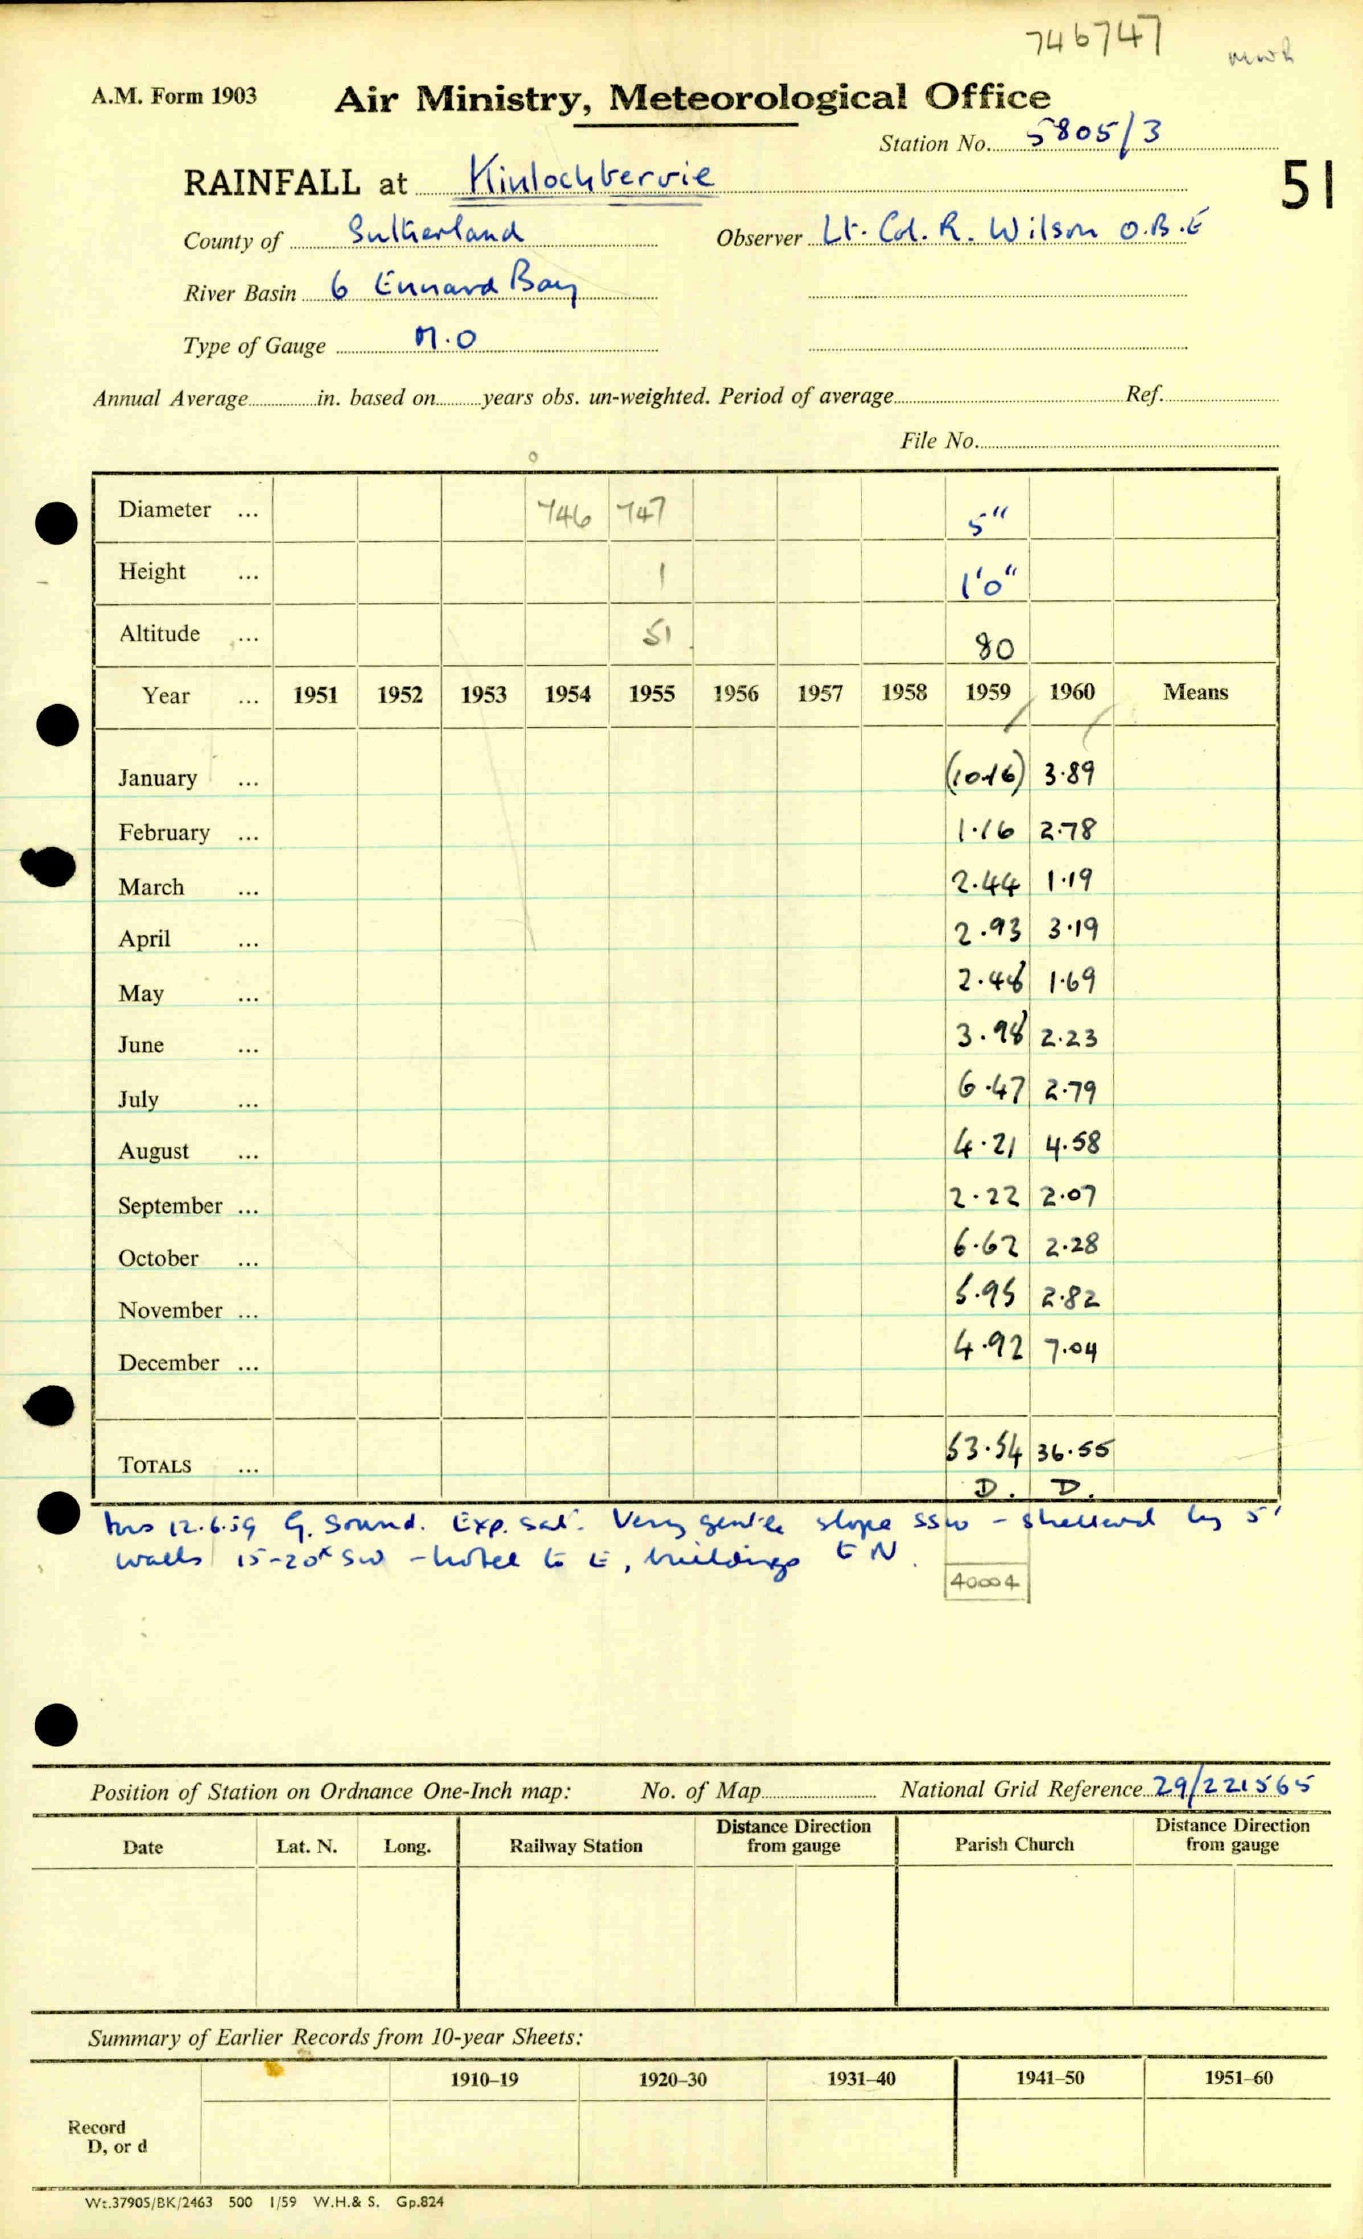 746747
A.M. Form 1903 Air Ministry, Meteorological Office
Station No. 5805/3
RAINFALL at Kinlochbervie 51
County of Sutherland Observer Lt. Col. R. Wilson O.B.E
River Basin 6 Ennard Bay
Type of Gauge M.O
Annual Average in. based on years obs. un-weighted. Period of average Ref.
File No.
Diameter ... 746 747 5"
Height ... 1 1'0"
Altitude ... 51 80
Year ... 1951 1952 1953 1954 1955 1956 1957 1958 1959 1960 Means
January ... (10.16) 3.89
February ... 1.16 2.78
March ... 2.44 1.19
April ... 2.93 3.19
May ... 2.48 1.69
June ... 3.98 2.23
July ... 6.47 2.79
August ... 4.21 4.58
September ... 2.22 2.07
October ... 6.62 2.28
November ... 5.95 2.82
December ... 4.92 7.04
TOTALS ... 53.54 36.55
D. D.
12.6.59 G. Sound. Exp. sat. Very gentle slope SSW - sheltered by 5'
walls 15-20x SW - hotel to E, buildings to N.
40004
Position of Station on Ordnance One-Inch map: No. of Map National Grid Reference 29/221565
Date Lat. N. Long. Railway Station Distance Direction from gauge Parish Church Distance Direction from gauge
Summary of Earlier Records from 10-year Sheets:
1910–19 1920–30 1931–40 1941–50 1951–60
Record
D, or d
Wt.37905/BK/2463 500 1/59 W.H.& S. Gp.824